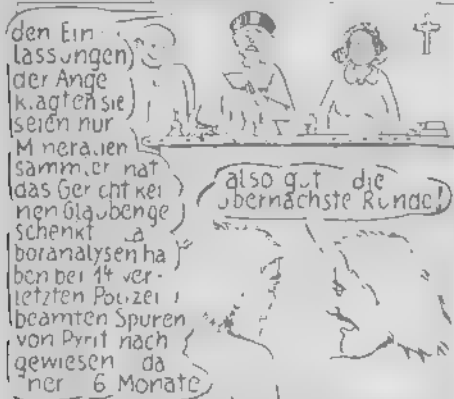 den Ein
lassungen
der Ange
klagten sie
seien nur
Mineralien
sammler hat
das Gericht kei
nen Glauben ge
schenkt La
boranalysen ha
ben bei 14 ver-
letzten Polizei
beamten Spuren
von Pyrit nach
gewiesen da
her 6 Monate
also gut die
übernächste Runde!